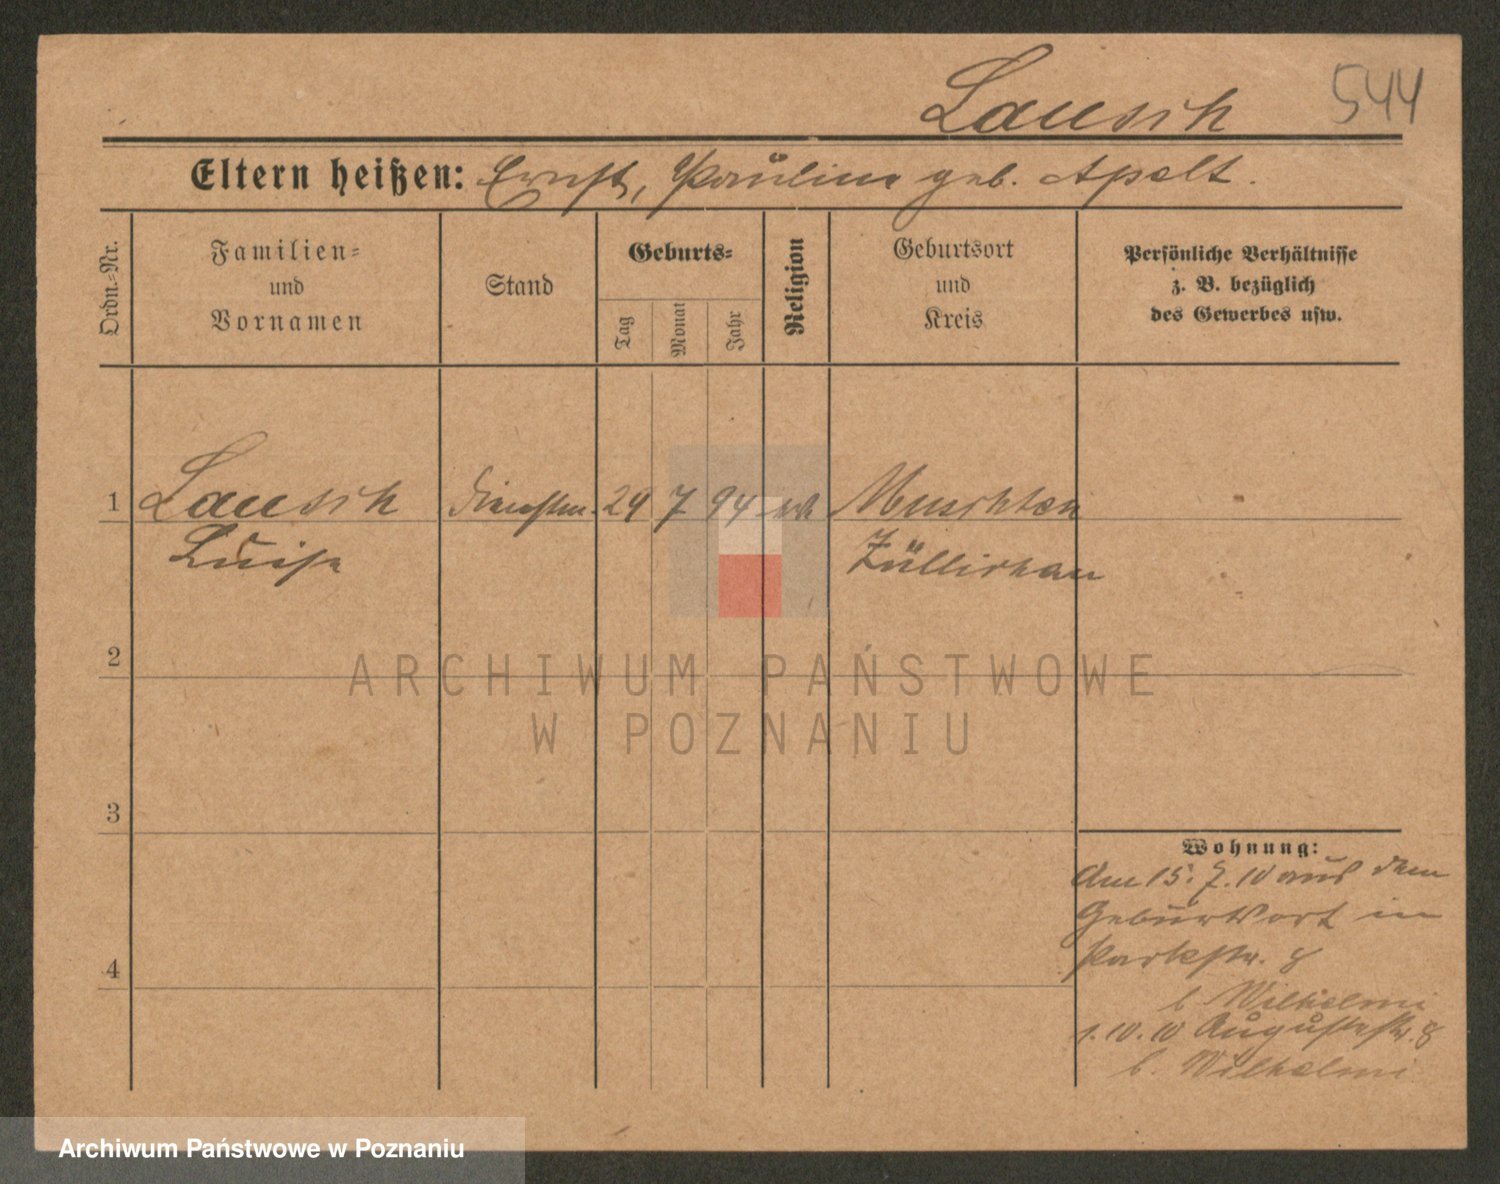 Lausch
544
Eltern heißen: Ernst, Pauline geb. Apelt.
Ordn.=Nr.
Familien=
und
Vornamen
Stand
Geburts=
Tag
Monat
Jahr
Religion
Geburtsort
und
Kreis
Persönliche Verhältnisse
z. B. bezüglich
des Gewerbes usw.
1 Lausch 29 7 94 Muschten
Luise Züllichau
2
3
4
Wohnung:
Am 15. 7. 10 aus dem
Geburtsort in
Parkstr. 8
b Wilhelmi
1. 10. 10 Augustastr. 8
b. Wilhelmi
ARCHIWUM PAŃSTWOWE
W POZNANIU
Archiwum Państwowe w Poznaniu